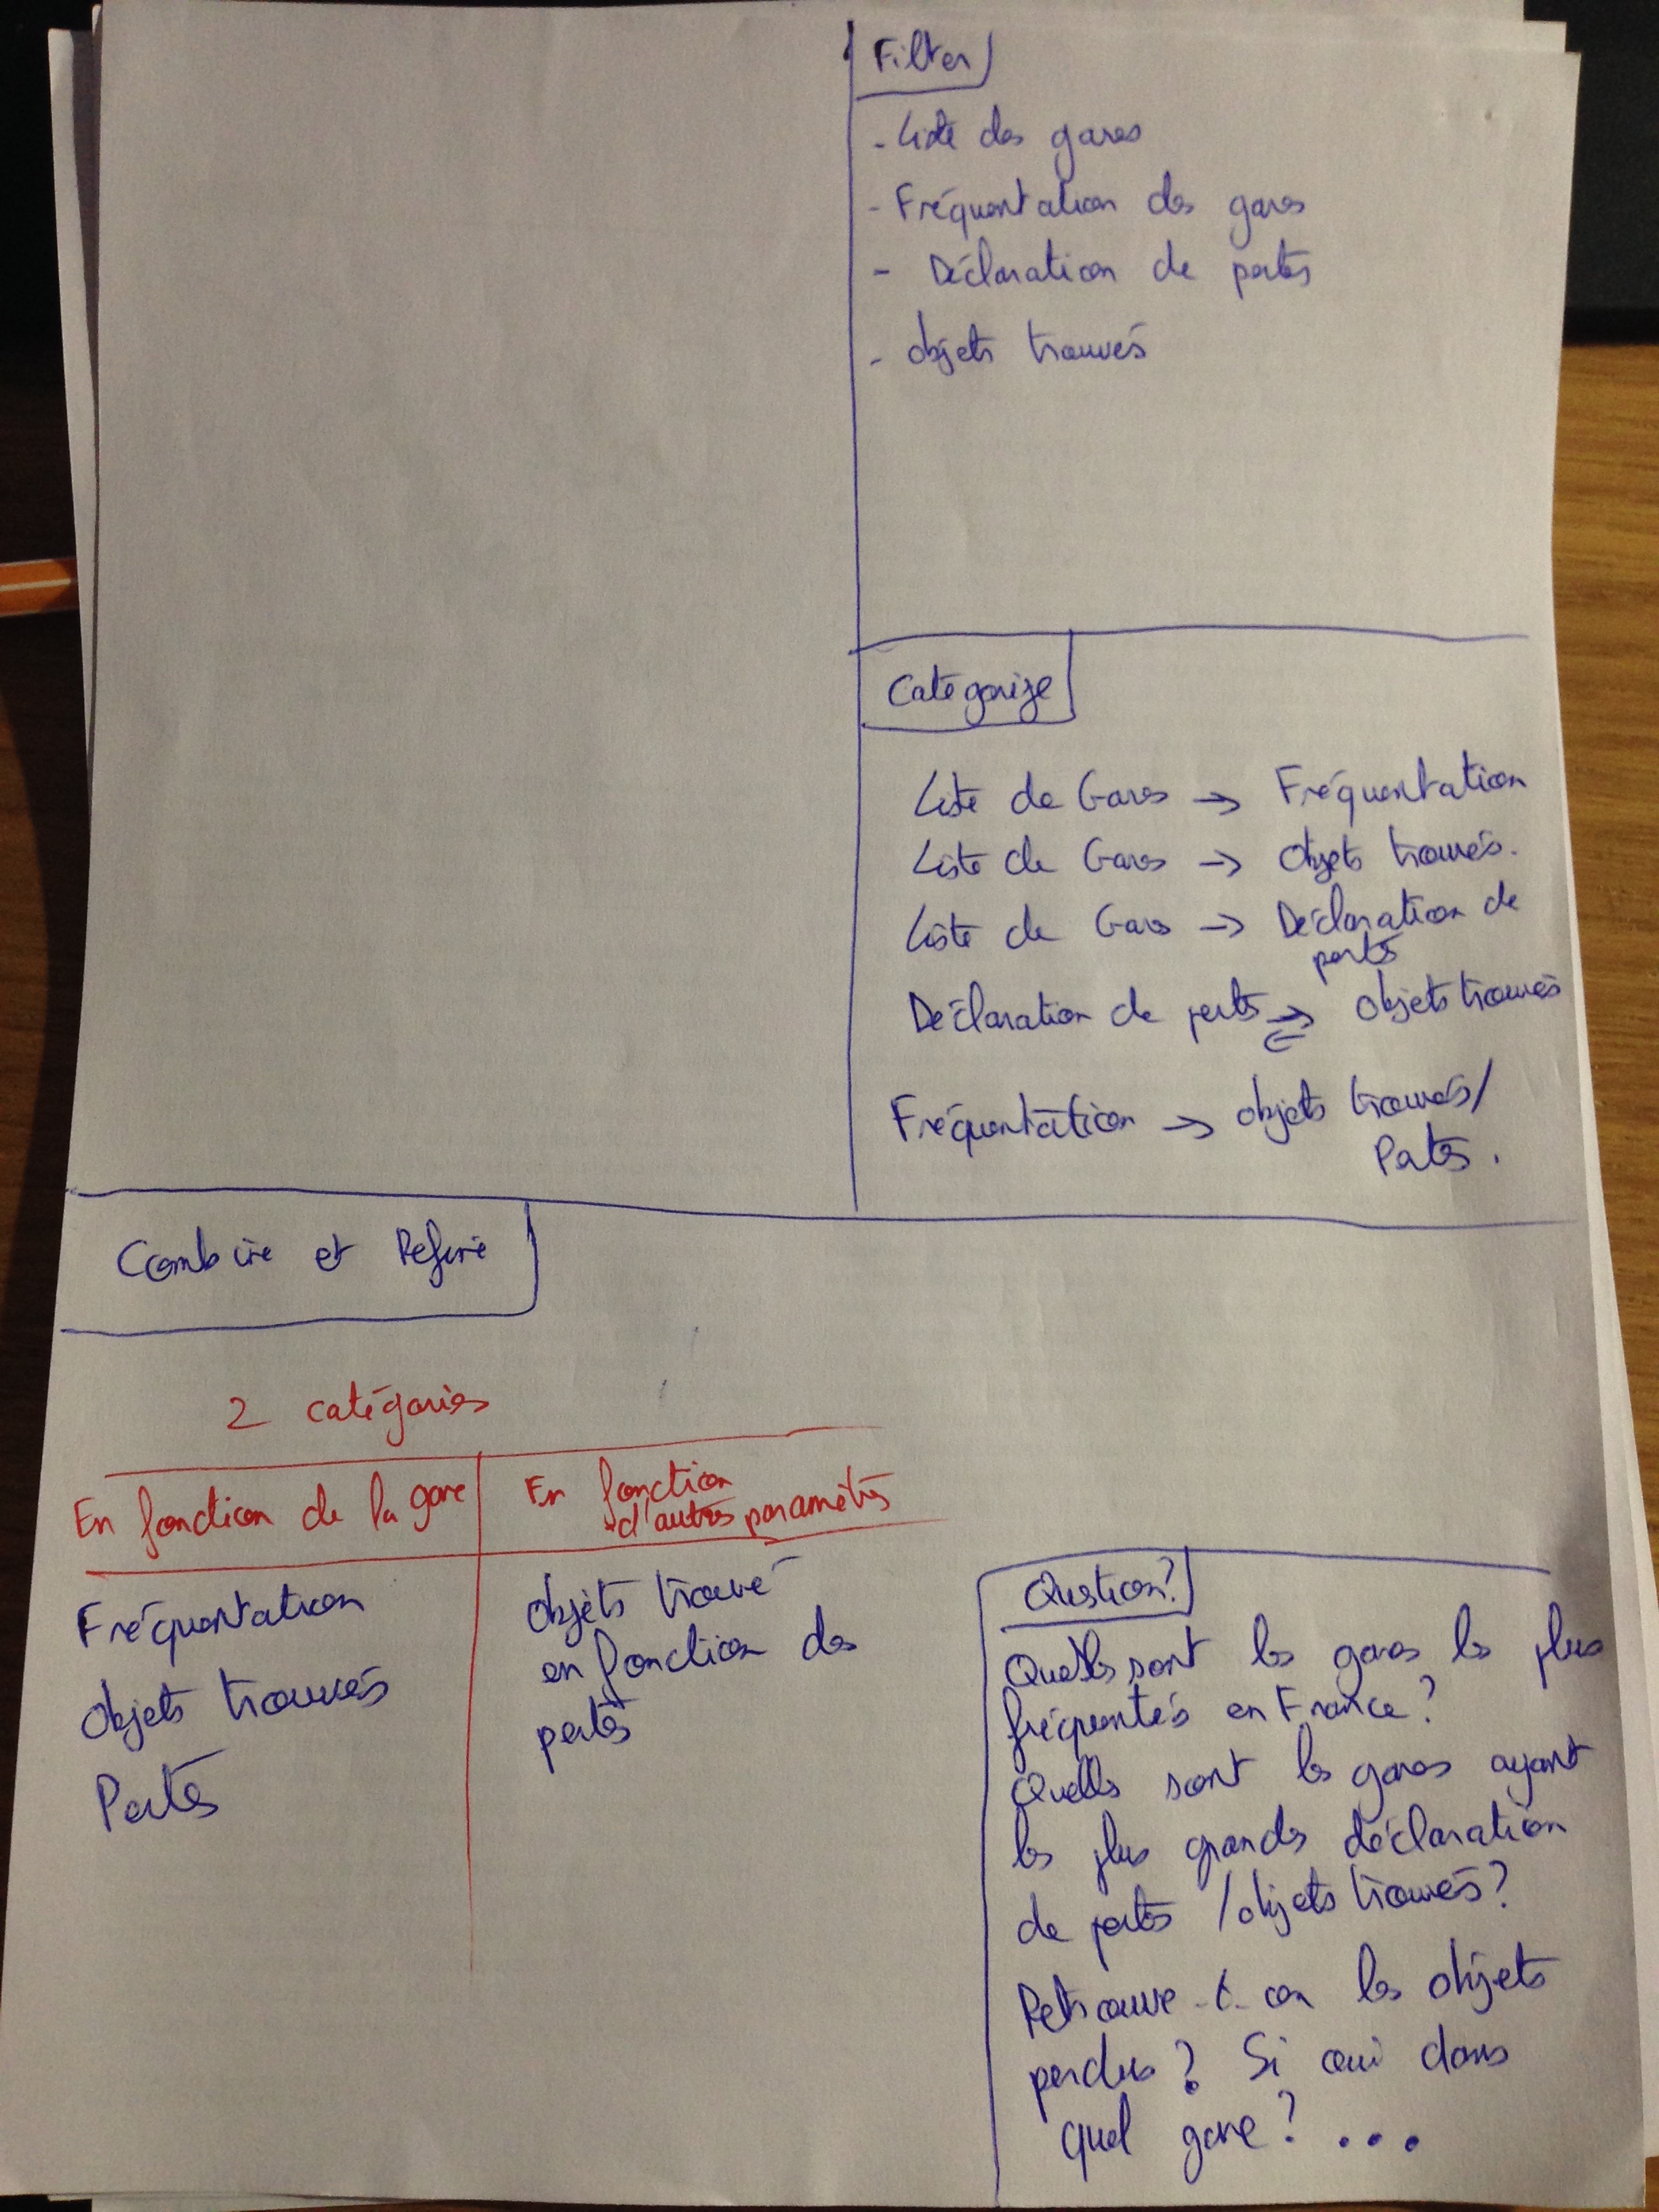 Filter
- Liste des gares
- Fréquentation des gares
- Déclaration de pertes
- objets trouvés
Catégorize
Liste de Gares → Fréquentation
Liste de Gares → Objets trouvés.
Liste de Gares → Déclaration de
pertes
Déclaration de pertes ⇄ objets trouvés
Fréquentation → objets trouvés/
Pertes.
Combine et Refine
2 catégories
En fonction de la gare
En fonction
d'autres paramètres
Fréquentation
Objets trouvés
Pertes
objets trouvé
en fonction des
pertes
Question?
Quelles sont les gares les plus
fréquentés en France?
Quelles sont les gares ayant
les plus grandes déclaration
de pertes / objets trouvés?
Retrouve-t-on les objets
perdus? Si oui dans
quel gare? ...